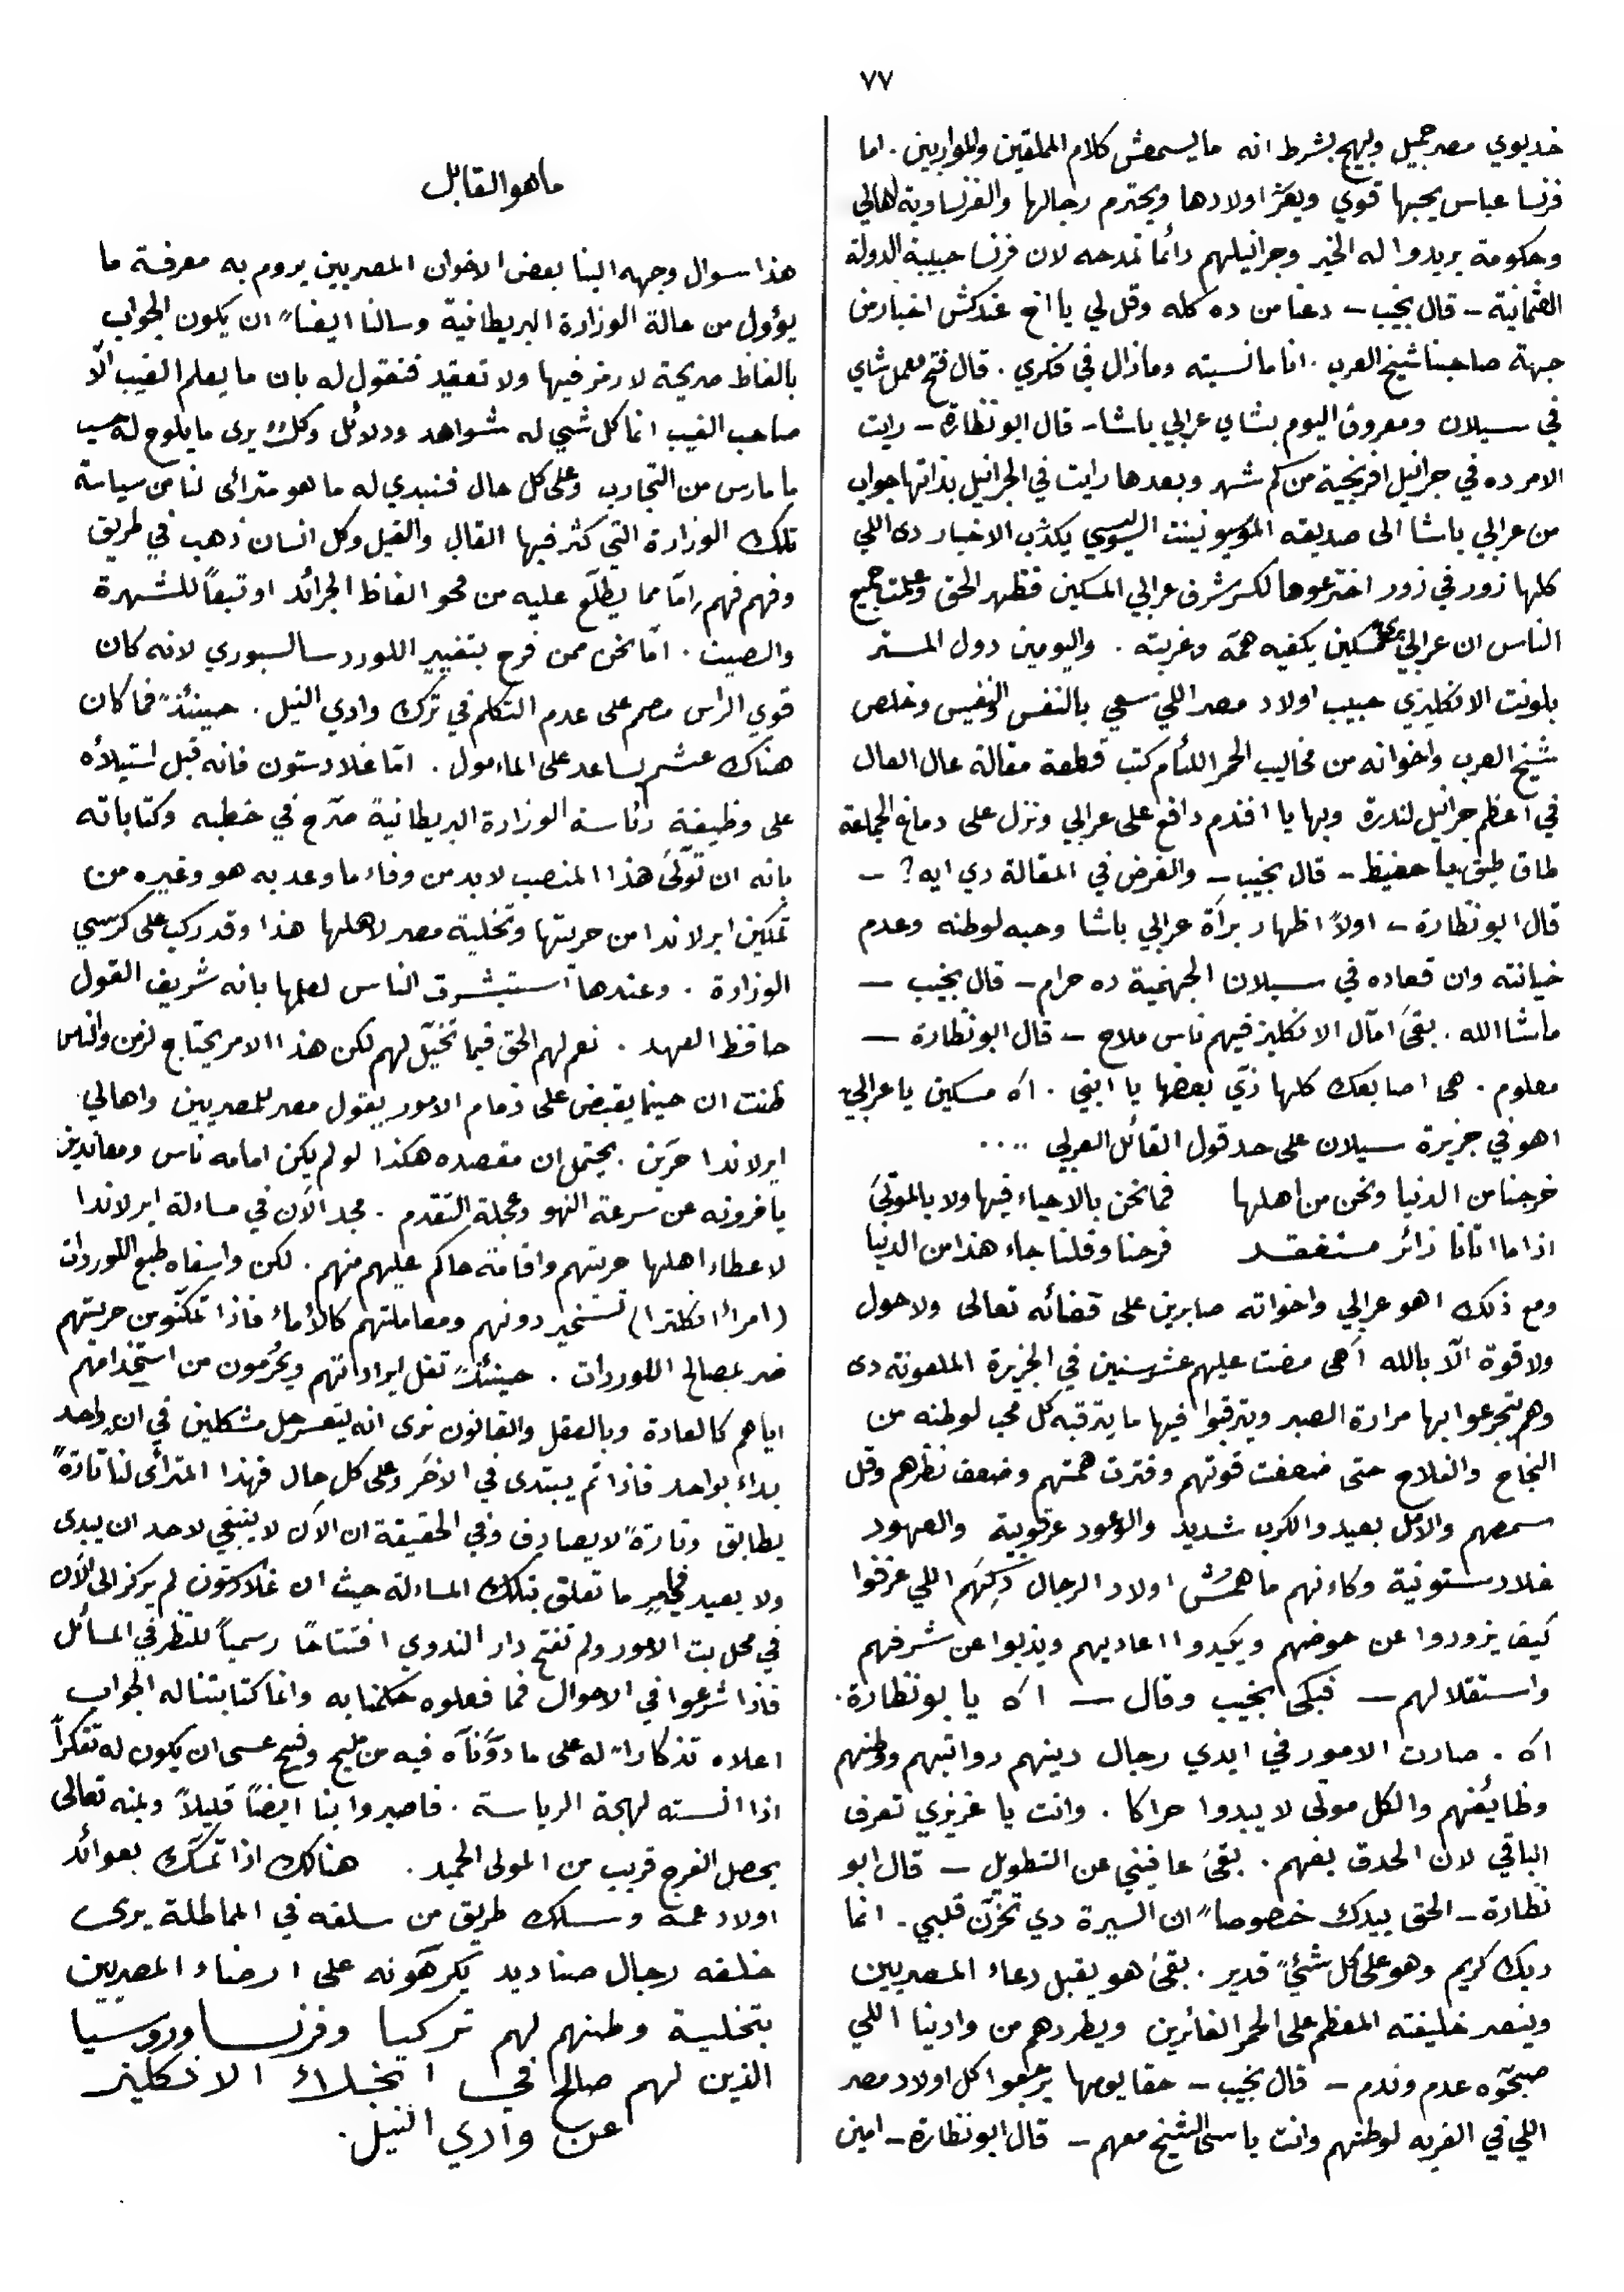 ٧٧
خديوي مصر جميل وبهيج بشرط انه ما يسمعش كلام الملقين والمواربين . اما
فرنسا عباس يحبها قوي ويعز اولادها ويحترم رجالها والفرنساوية اهالي
وحكومة يريدوا له الخير وجرانيلهم دائما تمدحه لان فرنسا حبيبة الدولة
العثمانية ـ قال نجيب ـ دعنا من ده كله وقل لي يا اخ عندكش اخبار من
جهة صاحبنا شيخ العرب . انا ما نسيته ومازال في فكري . قال فتح معمل شاي
في سيلان ومعروف اليوم بشاي عرابي باشا ـ قال ابو نظارة ـ رايت
الامر ده في جرانيل افرنجية من كم شهر وبعدها رايت في الجرانيل بذاتها جواب
من عرابي باشا الى صديقه الموسيو نينت السويسي يكذب الاخبار دى اللي
كلها زور في زور اخترعوها لكسر شرف عرابي المسكين فظهر الحق وعلمت جميع
الناس ان عرابي مسكين يكفيه همه وغربته . واليومين دول المستر
بلونت الانكليزي حبيب اولاد مصر اللي سعي بالنفس النفيس وخلص
شيخ العرب واخوانه من مخاليب الحمر اللئام كتب قطعة مقالة عال العال
في اعظم جرانيل لندرة وبها يا افندم دافع على عرابي ونزل على دماغ الجماعة
طاق طيق يا حفيظ ـ قال نجيب ـ والغرض في المقالة دي ايه ? ـ
قال ابو نظارة ـ اولاً اظهار برآة عرابي باشا وحبه لوطنه وعدم
خيانته وان قعاده في سيلان الجهنمية ده حرام ـ قال نجيب ـ
ماشا الله . بقى امّال الانكليز فيهم ناس ملاح ـ قال ابو نظارة ـ
معلوم . هى اصابعك كلها زيّ بعضها يا ابني . اه مسكين يا عرابي
اهو في جزيرة سيلان على حد قول القائل العربي ....
خرجنا من الدنيا ونحن من اهلها فما نحن بالاحياء فيها ولا بالموتى
اذا ما اتانا زائر متفقد فرحنا وقلنا جاء هذا من الدنيا
ومع ذلك اهو عرابي واخوانه صابرين على قضائه تعالى ولا حول
ولا قوة الّا بالله اهى مضت عليهم عشر سنين في الجزيرة الملعونة دى
وهم يتجرعوا بها مرارة الصبر ويترقبوا فيها ما يترقبه كل محب لوطنه من
النجاح والفلاح حتى ضعفت قوتهم وفترت همتهم وضعف نظرهم وقل
سمعهم والامل بعيد والكرب شديد والوعود عرقوبية والعهود
غلادستونية وكاءنهم ما همش اولاد الرجال دكهم اللي عرفوا
كيف يزودوا عن حوضهم ويكيدوا اعاديهم ويذبوا عن شرفهم
واستقلالهم ـ فبكى نجيب وقال ـ اه يا بو نظارة .
اه . صارت الامور في ايدي رجال دينهم رواتبهم ووطنهم
وظايفهم والكل موتى لا يبدوا حراكا . وانت يا عزيزي تعرف
الباقي لان الحدق يفهم . بقى عافيني عن التطويل ـ قال ابو
نظارة ـ الحق بيدك خصوصاً ان السيرة دي تحزّن قلبي . انما
ربك كريم وهو على كل شئٍ قدير . بقى هو يقبل دعاء المصريين
وينصر خليفته المعظم على الحمر الغائرين ويطردهم من وادينا اللي
صبحّوه عدم وندم ـ قال نجيب ـ حقا يومها يرجعوا كل اولاد مصر
اللي في الغربه لوطنهم وانت يا سى الشيخ معهم ـ قال ابو نظارة ـ امين
ما هو القابل
هذا سوال وجهه الينا بعض الاخوان المصريين يروم به معرفة ما
يؤول من حالة الوزارة البريطانية وسالنا ايضاً ان يكون الجواب
بالفاظ صريحة لا رمز فيها ولا تعقيد فنقول له بان ما يعلم الغيب الّا
صاحب الغيب انما كل شي له شواهد ودلائل وكل يرى ما يلوح له حسب
ما مارس من التجارب وعلى كل حال فنبدي له ما هو مترائى لنا من سياسة
تلك الوزارة التي كثر فيها القال والقيل وكل انسان ذهب في طريق
وفهم فهم امّا مما يطلّع عليه من نحو الفاظ الجرائد او تبعاً للشهرة
والصيت . امّا نحن ممن فرح بتغيير اللورد سالسبوري لانه كان
قوي الراس مصمم على عدم التكلم في ترك وادي النيل . حينئذٍ فما كان
هناك عشم يساعد على الماءمول . امّا غلادستون فانه قبل استيلاؤه
على وظيفة رئاسة الوزارة البريطانية صرّح في خطبه وكتاباته
بانه ان تولّى هذا المنصب لابد من وفاء ما وعد به هو وغيره من
تمكين ايرلاندا من حريتها وتخلية مصر لاهلها هذا وقد ركب على كرسي
الوزارة . وعندها استبشرت الناس لعلمها بانه شريف القول
حافظ العهد . نعم لهم الحق فيما تخيّل لهم لكن هذا الامر يحتاج لزمن والناس
ظنت ان حينما يقبض على زمام الامور يقول مصر للمصريين واهالي
ايرلاندا حرّين . يحتمل ان مقصده هكذا لو لم يكن امامه ناس ومعاندين
ياخرونه عن سرعة النهو وعجلة التقدم . مجد الآن في مساءلة ايرلاندا
لاعطاء اهلها حريتهم واقامة حاكم عليهم منهم . لكن واسفاه طبع اللوردات
(امراءُ انكلترا) تسخير دونهم ومعاملتهم كالأماء فاذا تمكنّو من حريتهم
ضر بمصالح اللوردات . حينئذٍ تقل ايراداتهم ويحُرمون من استخدامهم
اياهم كالعادة وبالعقل والقانون نرى انه يتعسر حل مشكلين في ان واحد
بداء بواحد فاذا تم يبتدى في الاخر وعلى كل حال فهذا المترائى لنا تارةً
يطابق وتارةً لا يصادف وفي الحقيقة ان الآن لا ينبغي لاحد ان يبدى
ولا يعيد ما تعلق بتلك المساءلة حيث ان غلادستون لم يركز الى الآن
في محل بت الامور ولم تفتح دار الندوي افتتاحًا رسمياً للنظر في المسائل
فاذا شرعوا في الاحوال فما فعلوه حكمنا به وانما كتابتنا له الجواب
اعلاه تذكاراً له على ما دوّناه فيه من مليح وقبيح عسى ان يكون له تفكراً
اذا انسته لهجة الرياسة . فاصبروا بنا ايضاً قليلاً وبمنه تعالى
يحصل الفرج قريب من المولى الحميد . هنالك اذا تمسّك بعوائد
اولاد عمه وسلك طريق من سلفه في المماطلة يرى
خلفه رجال صناديد يكرهونه على ارضاء المصريين
بتخلية وطنهم لهم تركيا وفرنسا وروسيا
الذين لهم صالح في انجلاء الانكليز
عن وادي النيل .